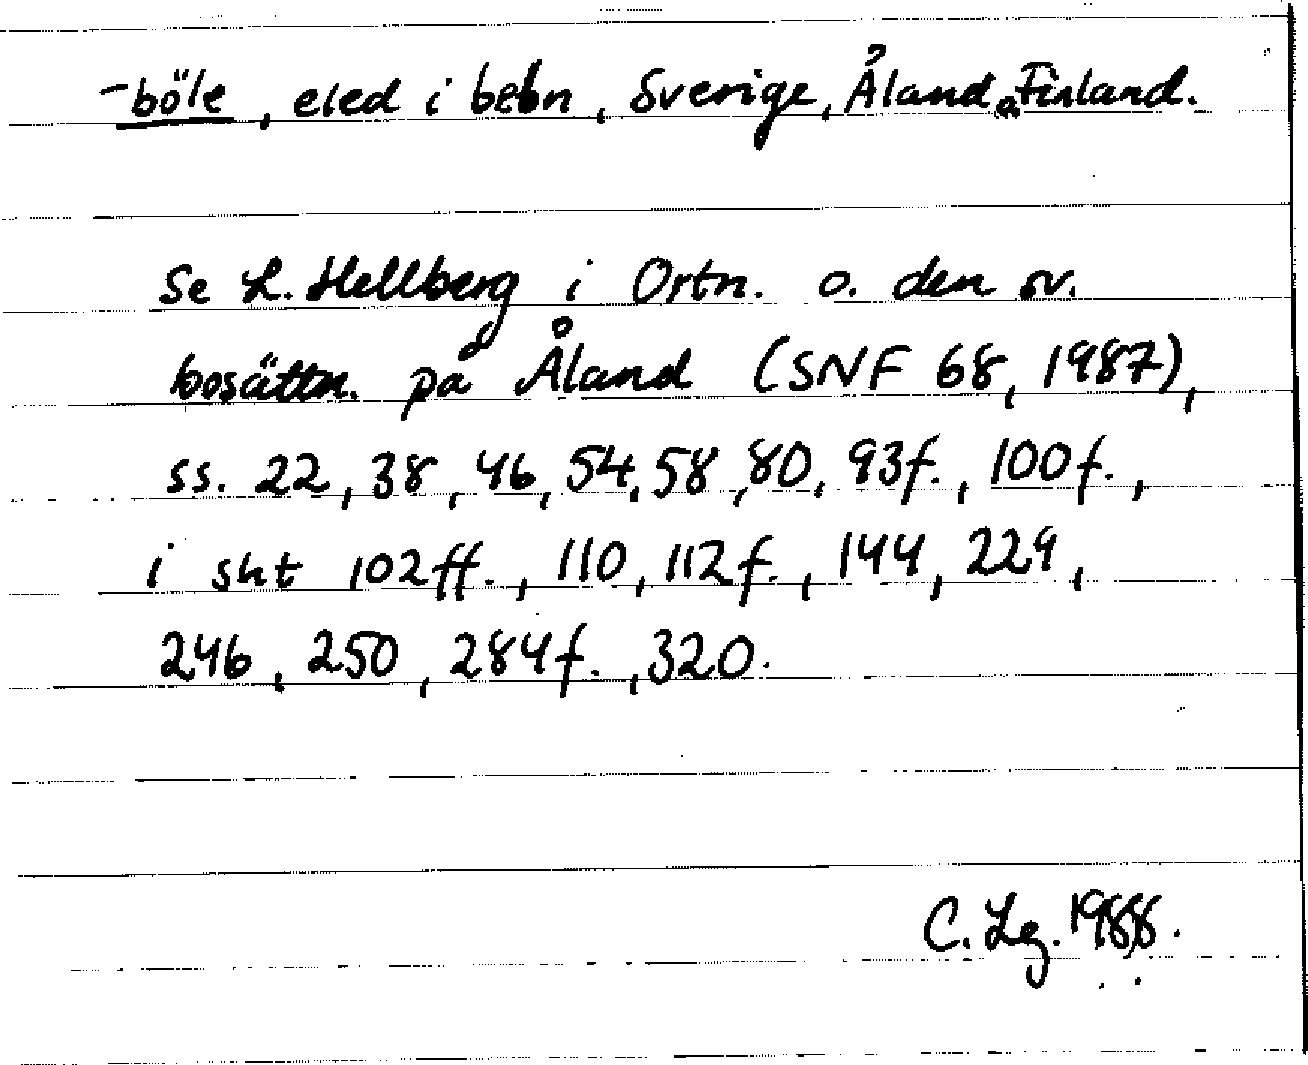 -böle, eled i bebn, Sverige, Åland o Finland.
Se L. Hellberg i Ortn. o. den sv.
bosättn. på Åland (SNF 68, 1987),
ss. 22, 38, 46, 54, 58, 80, 93f., 100f.,
i sht 102ff., 110, 112f., 144, 229,
246, 250, 284f., 320.
C. Lg. 1988.